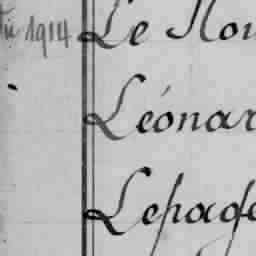 1914 Le Nou
Léonar
Lepage